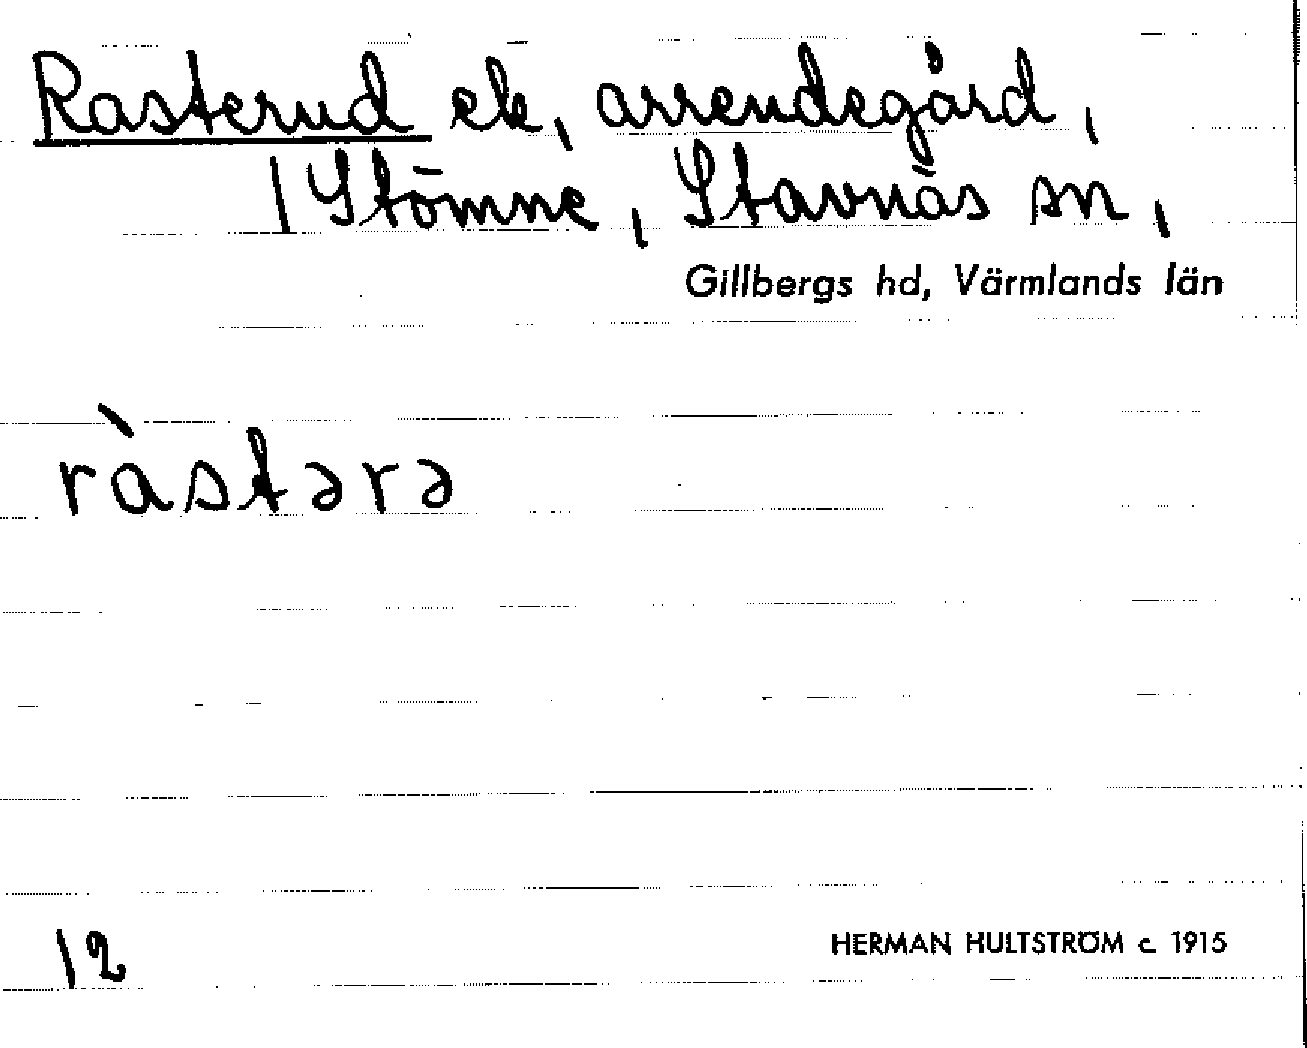 Rasterud ek, arrendegård,
/Stömne, Stavnäs sn,
Gillbergs hd, Värmlands län
ràstərə
12
HERMAN HULTSTRÖM c. 1915